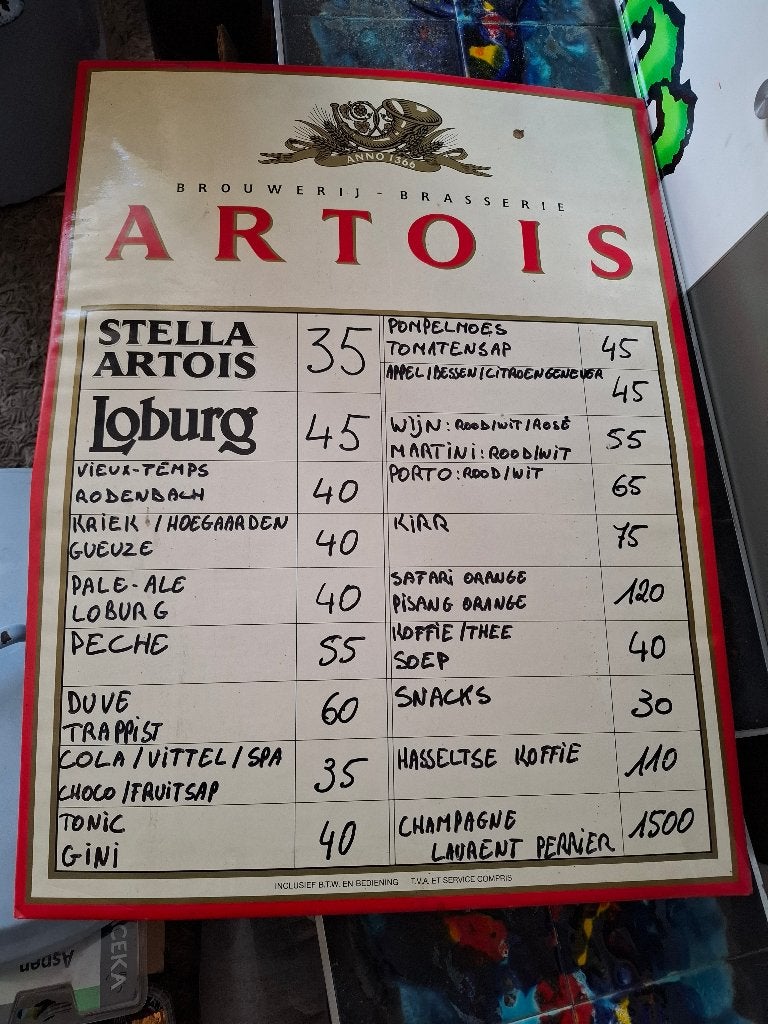 ANNO 1366
BROUWERIJ - BRASSERIE
ARTOIS
STELLA
ARTOIS
35
Loburg
45
VIEUX-TEMPS
RODENBACH
40
KRIEK / HOEGAARDEN
GUEUZE
40
PALE-ALE
LOBURG
40
PECHE
55
DUVE
TRAPPIST
60
COLA / VITTEL / SPA
CHOCO / FRUITSAP
35
TONIC
GINI
40
POMPELMOES
TOMATENSAP
45
APPEL / BESSEN / CITROENGENEVER
45
WIJN: ROOD/WIT/ROSÉ
MARTINI: ROOD/WIT
55
PORTO: ROOD/WIT
65
KIRR
75
SAFARI ORANGE
PISANG ORANGE
120
KOFFIE / THEE
SOEP
40
SNACKS
30
HASSELTSE KOFFIE
110
CHAMPAGNE
LAURENT PERRIER
1500
INCLUSIEF B.T.W. EN BEDIENING T.V.A. ET SERVICE COMPRIS
CEKA
Aspen